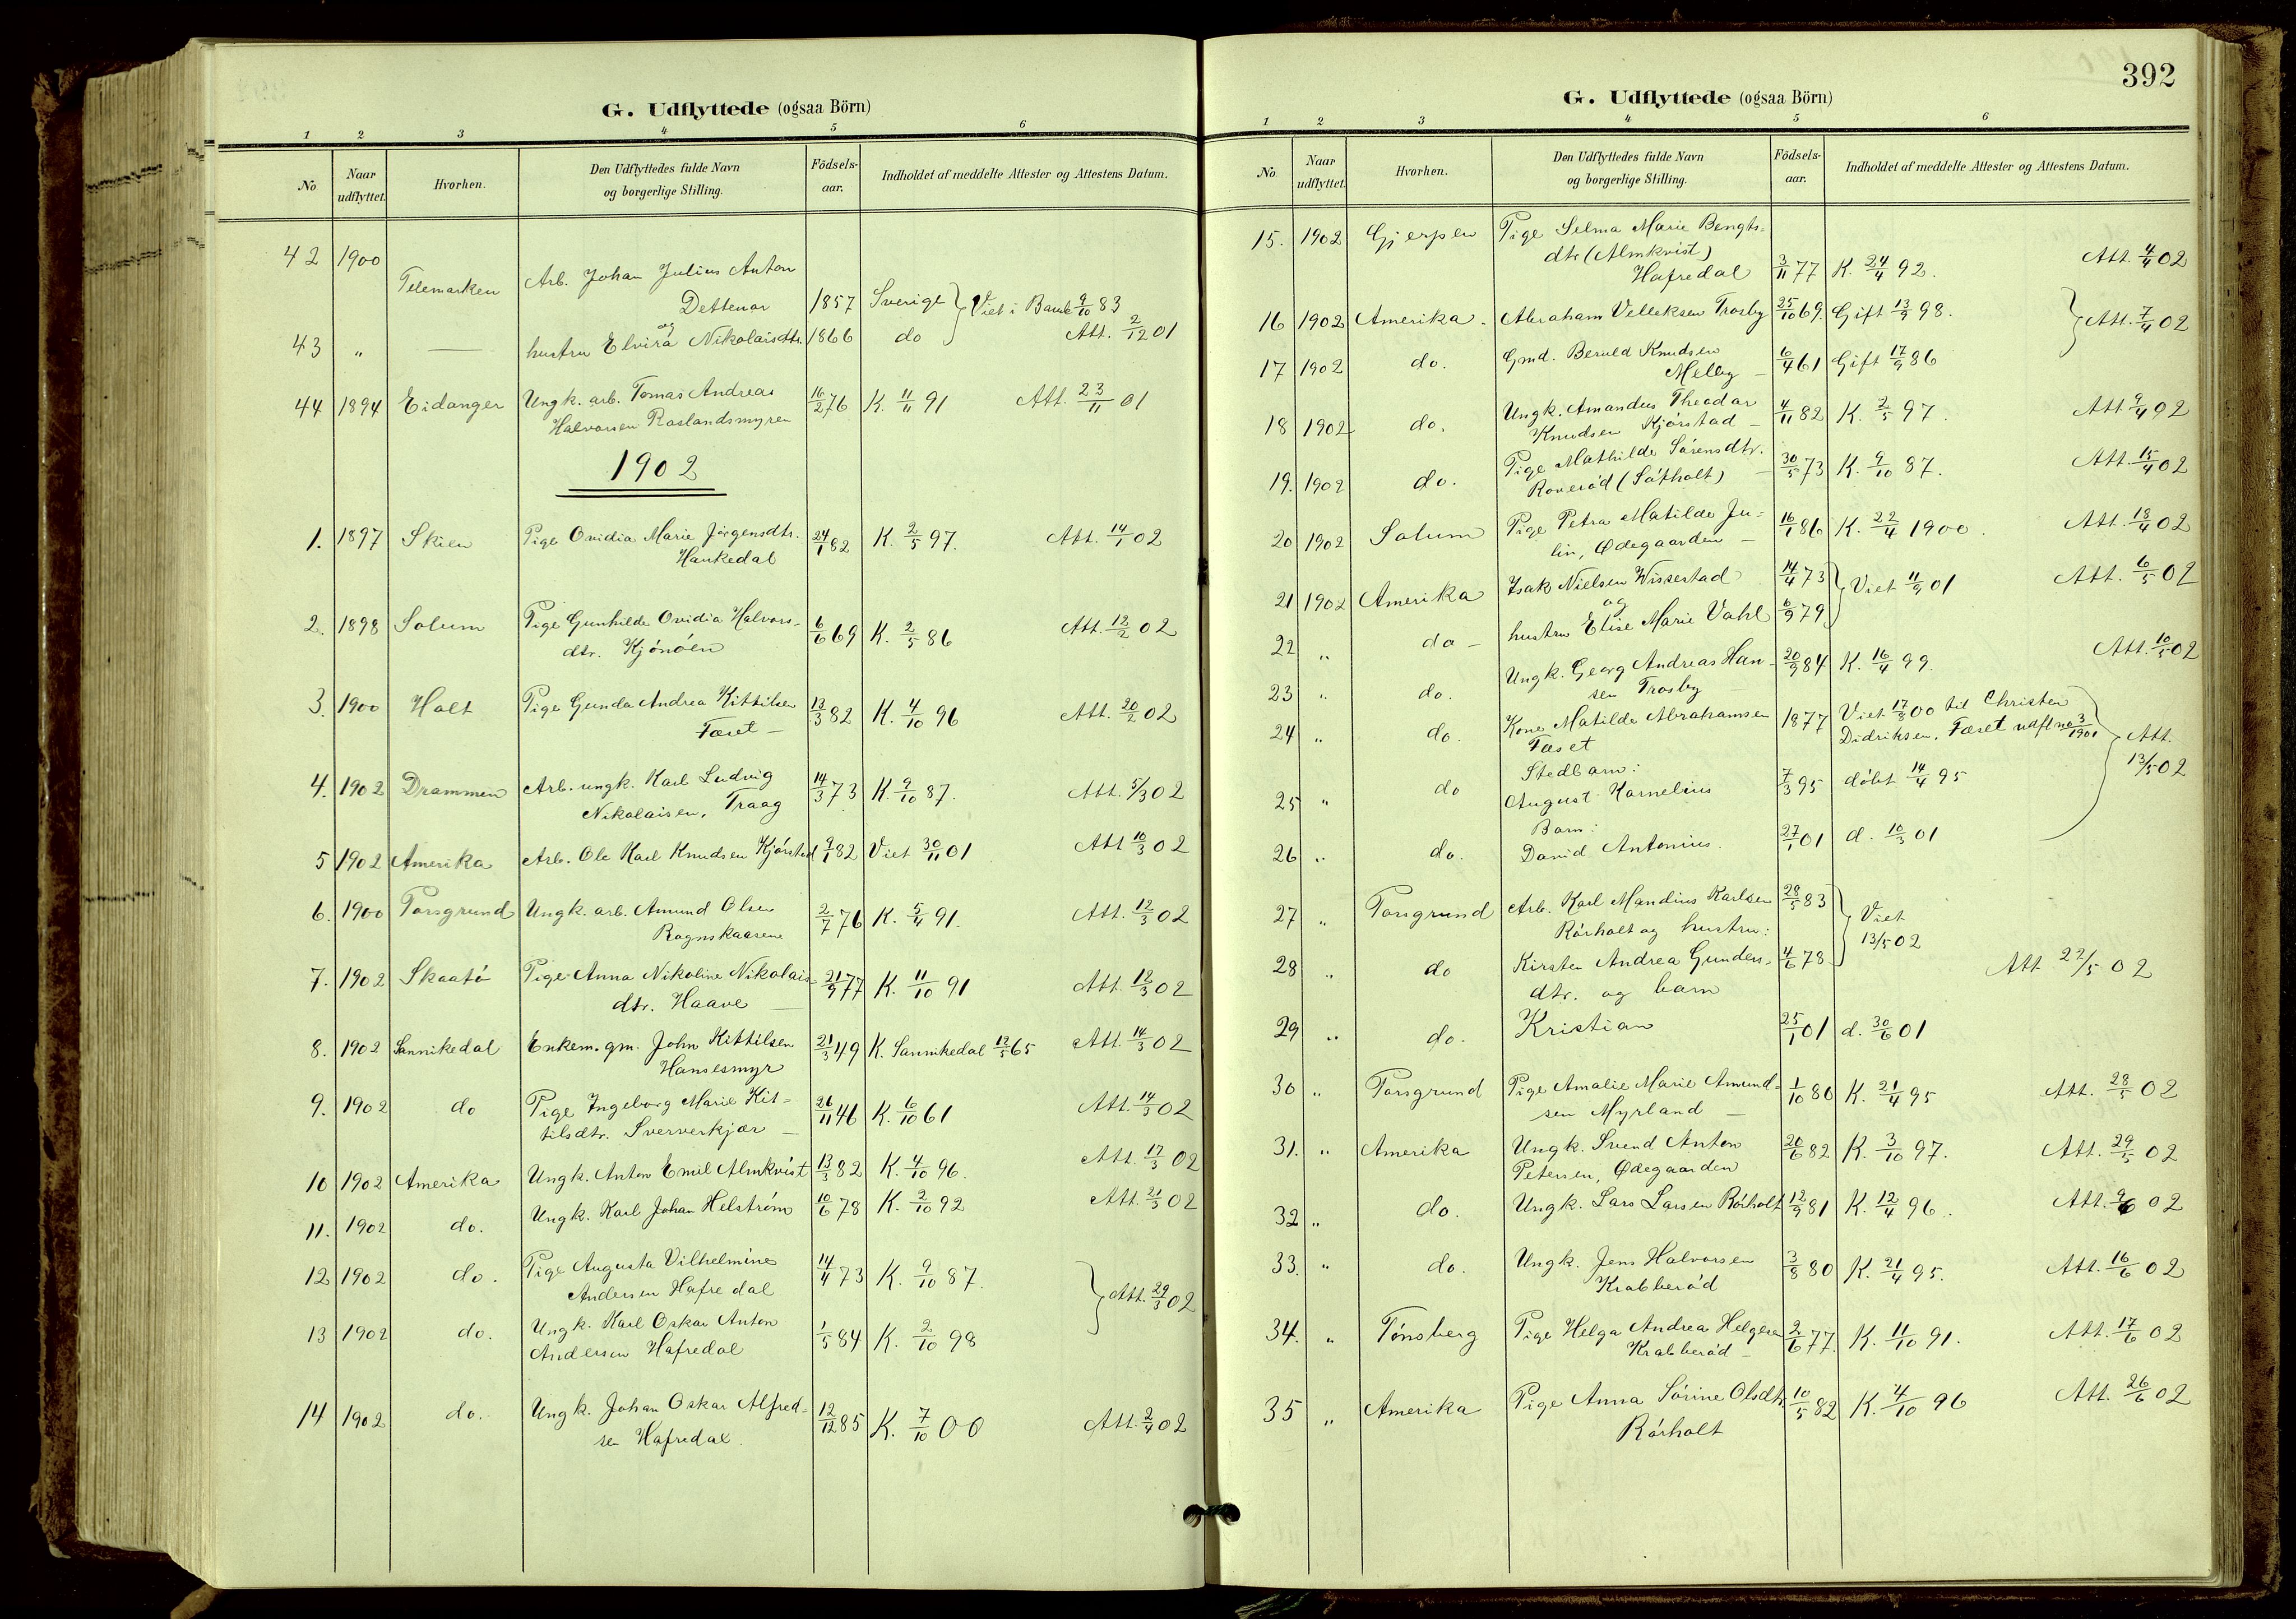 G. Udflyttede (ogsaa Börn)
1 2 3 4 5 6
No Naar udflyttet. Hvorhen. Den Udflyttedes fulde Navn og borgerlige Stilling. Födsels-aar. Indholdet af meddelte Attester og Attestens Datum.
42 1900 Telemarken Arb. Johan Julius Anton
Dettenar 1857 Sverige } Viet i Bamle 9/10 83
og
43 " — hustru Elvira Nikolaisdtr. 1866 do Att. 2/12 01
44 1894 Eidanger Ungk. arb. Tomas Andreas 16/2 76 K. 11/11 91 Att. 23/11 01
Halvorsen Roslandsmyren
1902
1. 1897 Skien Pige Ovidia Marie Jörgensdtr. 24/1 82 K. 2/5 97. Att. 14/1 02
Haukedal
2. 1898 Solum Pige Gunhilde Ovidia Halvors- 6/6 69 K. 2/5 86 Att. 12/2 02
dtr. Kjönöen
3. 1900 Holt Pige Gunda Andrea Kittilsen 13/3 82 K. 4/10 96 Att. 20/2 02
Fæset —
4. 1902 Drammen Arb. ungk. Karl Ludvig 14/3 73 K. 9/10 87. Att. 5/3 02
Nikolaisen, Traag
5 1902 Amerika Arb. Ole Karl Knudsen Kjörstad 9/1 82 Viet 30/11 01 Att 10/3 02
6. 1900 Porsgrund Ungk. arb. Amund Olsen 2/7 76 K. 5/4 91. Att. 12/3 02
Rognskaasene
7. 1902 Skaatö Pige Anna Nikoline Nikolais- 21/9 77 K. 11/10 91 Att. 12/3 02
dtr. Haave —
8. 1902 Sannikedal Enkem. gm. John Kittilsen 21/3 49 K. Sannikedal 12/5 65 Att. 14/3 02
Hansesmyr
9. 1902 do Pige Ingeborg Marie Kit- 26/11 46 K. 6/10 61 Att. 14/3 02
tilsdtr. Sververkjær —
10 1902 Amerika Ungk. Anton Emil Almkvist 13/3 82 K. 4/10 96. Att. 17/3 02
11. 1902 do. Ungk. Karl Johan Helström 10/6 78 K. 2/10 92 Att. 21/3 02
12 1902 do. Pige Augusta Vilhelmine 14/4 73 K. 9/10 87. } Att. 29/3 02
Andersen Hafredal
13 1902 do. Ungk. Karl Oskar Anton 1/5 84 K. 2/10 98
Andersen Hafredal
14 1902 do. Ungk. Johan Oskar Alfred- 12/12 85 K. 7/10 00 Att. 2/4 02
sen Hafredal.
392
G. Udflyttede (ogsaa Börn)
1 2 3 4 5 6
No Naar udflyttet. Hvorhen. Den Udflyttedes fulde Navn og borgerlige Stilling. Födsels-aar. Indholdet af meddelte Attester og Attestens Datum.
15. 1902 Gjerpen Pige Selma Marie Bengts-
dtr (Almkvist)
Hafredal 3/11 77 K. 24/4 92. Att. 4/4 02
16 1902 Amerika. Abraham Velleksen Trosby 25/10 69. Gift 13/9 98. } Att. 7/4 02
17 1902 do. Gmd. Beruld Knudsen 6/4 61 Gift 17/9 86
Melby —
18 1902 do. Ungk. Amandus Theodor 4/11 82 K. 2/5 97. Att 9/4 02
Knudsen Kjörstad —
19. 1902 do. Pige Mathilde Sörensdtr. 30/5 73 K. 9/10 87. Att. 15/4 02
Roneröd (Såtholt)
20 1902 Solum Pige Petra Matilde Ju- 16/1 86 K. 22/4 1900. Att. 18/4 02
lin, Ödegaarden —
21 1902 Amerika Isak Nielsen Wissestad 14/4 73 } Viet 11/9 01 Att. 6/5 02
og
22 " do — hustru Elise Marie Vahl 6/9 79
23 " do. Ungk. Georg Andreas Han- 20/9 84 K. 16/4 99. Att. 10/5 02
sen Trosby
24 " do. Kone Matilde Abrahamsen 1877 Viet 17/8 00 til Christen
Fæset Didriksen, Fæset udfl no 3/1901 } Att. 13/5 02
Stedbarn:
25 " do August Kornelius 7/3 95 döbt 14/4 95
Barn:
26 " do. David Antonius. 27/1 01 d. 10/3 01
27 " Porsgrund Arb. Karl Mandius Karlsen 28/5 83 } Viet 13/5 02
Rörholt og hustru:
28 " do Kirsten Andrea Gunders- 4/6 78 Att 22/5 02
dtr. og barn
29 " do. Kristian 25/1 01 d. 30/6 01
30 " Porsgrund Pige Amalie Marie Amund- 1/10 80 K. 21/4 95 Att. 28/5 02
sen Myrland —
31. " Amerika Ungk. Svend Anton 20/6 82 K. 3/10 97. Att. 29/5 02
Petersen, Ödegaarden
32 " do. Ungk. Lars Larsen Rörholt 12/9 81 K. 12/4 96. Att. 9/6 02
33. " do. Ungk. Jens Halvorsen 3/8 80 K. 21/4 95. Att. 16/6 02
Krabberöd
34. " Tönsberg Pige Helga Andrea Helgesen 2/6 77. K. 11/10 91. Att. 17/6 02
Krabberöd —
35 " Amerika Pige Anna Sörine Olsdtr. 10/5 82 K. 4/10 96 Att. 26/6 02
Rörholt